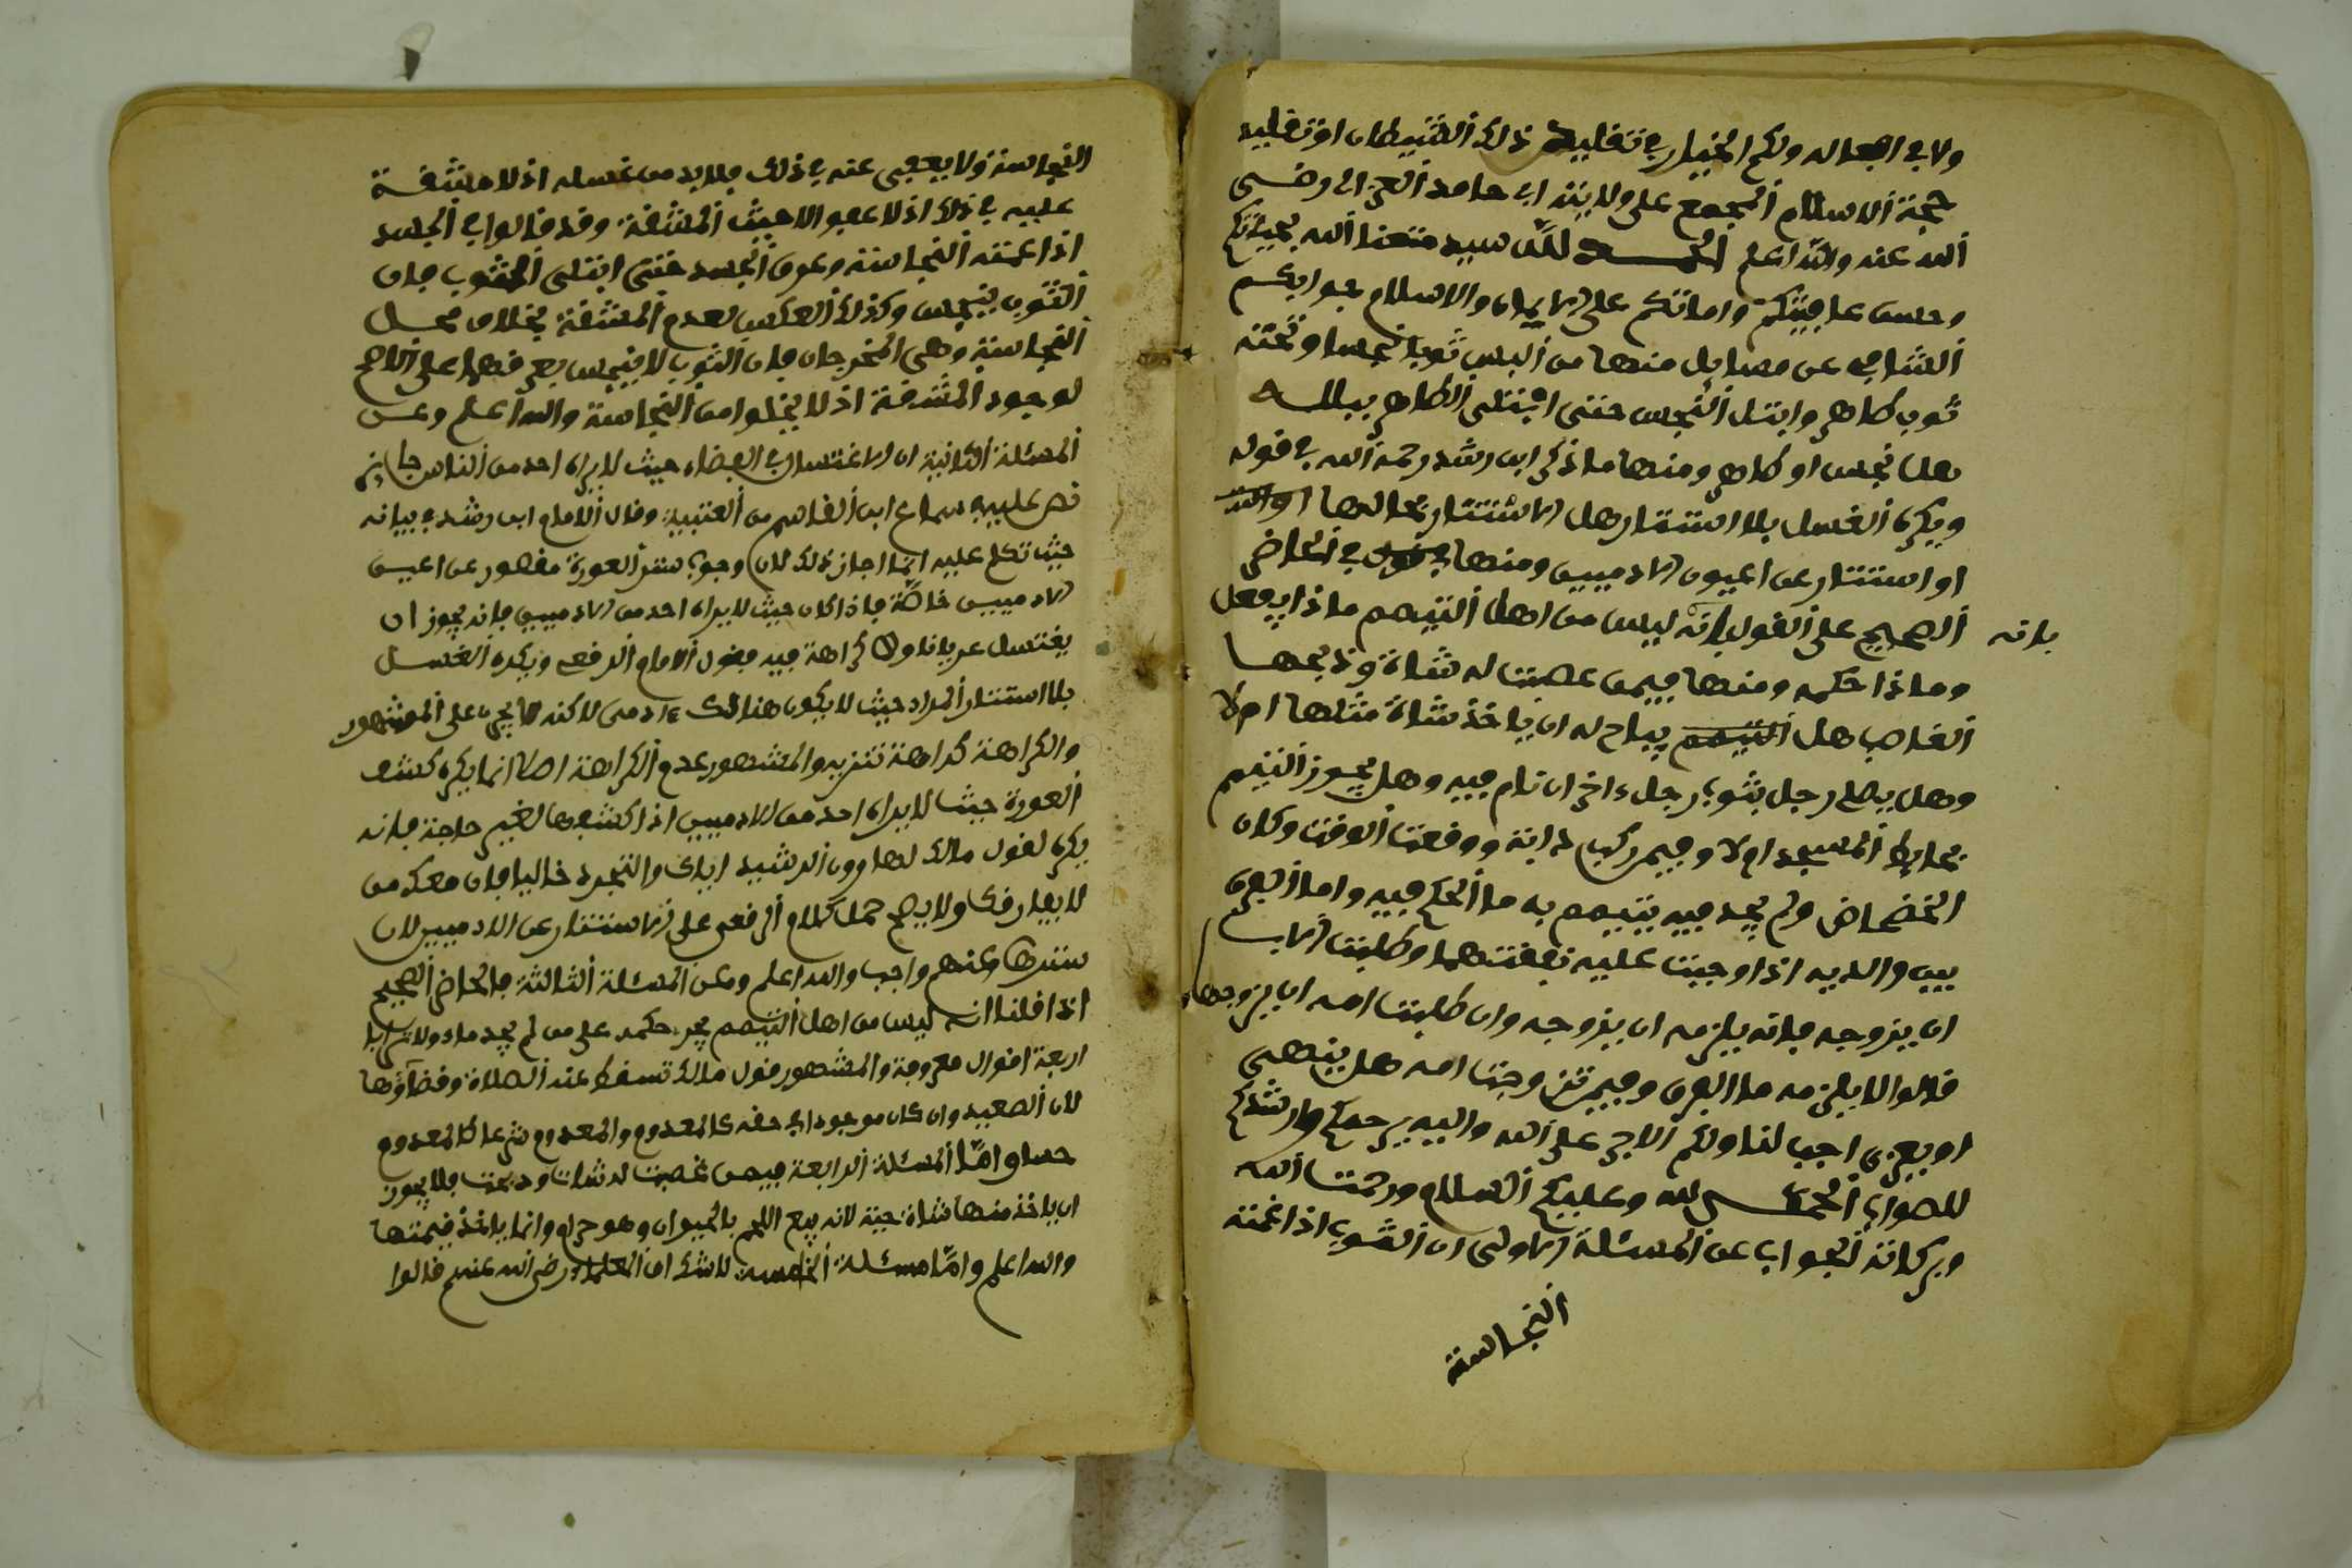 ولا في افعاله ولكم الخيار في تقليد ذلك الشيطان او تقليد
حجة الاسلام المجمع على ولايته ابي حامد الغزالي رضي
الله عنه والله اعلم الحمد لله سيد متعنا الله بحياتكم
وحسن عافيتكم واماتكم على الايمان والاسلام جوابكم
الشافي عن مسايل منها من البس ثوبا نجسا وتحته
ثوب طاهر وابتل النجس حتى ابتل الطاهر ببلله
هل نجس او طاهر ومنها ما ذكر ابن رشد رحمه الله في قوله
ويكره الغسل بلا استتار هل الاستتار بحالها
او استتار عن اعيون الادميين ومنها في الحاضر
الصحيح على القول بانه ليس من اهل التيمم ماذا يفعل
بانه
وماذا حكمه ومنها فيمن غصبت له شاة وذبحها
الغاصب هل يباح له ان ياخذ شاة مثلها ام لا
وهل يصلي رجل بثوب رجل ءاخر ان نام فيه وهل يجوز التيمم
بحايط المسجد ام لا وفيمن ركب دابة ووقعت الوقت وكان
الخضخاض ولم يجد فيه يتيمم به ما الحكم فيه واما الفرق
بين والديه اذا وجبت عليه نفقتهما وطلبت الاب
ان يزوجه فانه يلزمه ان يزوجه وان طلبت امه ان يزوجها
قالوا لا يلزمه ما الفرق وفيمن تزوجت امه هل ينتهى
او يعزى اجب لنا ولكم الاجر على الله واليه يرحمكم وارشدكم
للصواب الحمد لله وعليكم السلام ورحمت الله
وبركاته الجواب عن المسئلة الاولى ان الثوب اذا عمته
النجاسة
النجاسة ولا يعفى عنه في ذلك فلا بد من غسله اذ لا مشقة
عليه في ذلك اذ لا عفو الا حيث المشقة وقد قالوا في الجسد
اذا عمته النجاسة وعرق الجسد حتى ابتل الثوب فان
الثوب ينجس وكذلك العكس لعدم المشقة بخلاف محل
النجاسة وهي المخرجان فان الثوب لا ينجس بعرقهما على الراجح
لوجود المشقة اذ لا يخلوا من النجاسة والله اعلم وعن
المسئلة الثانية ان الاغتسال في الفضاء حيث لا يراه احد من الناس جايز
نص عليه سماع ابن القاسم من العتبية وقال الامام ابن رشد في بيانه
حيث تكلم عليه انما اجاز ذلك لان وجوب ستر العورة مقصور عن اعين
الادميين خاصة فاذا كان حيث لا يراه احد من الادميين فانه يجوز ان
يغتسل عريانا ولا كراهة فيه فقول الامام الرفعي ويكره الغسل
بلا استتار المراد حيث لا يكون هنالك ءادمي لاكنه لا يجري على المشهور
والكراهة كراهة تنزيه والمشهور عدم الكراهة اصلا انما يكره كشف
العورة حيث لا يراه احد من الادميين اذا كشفها لغير حاجة فانه
يكره لقول مالك لهارون الرشيد اياك والتجرد خاليا فان معك من
لا يفارقك ولا يصح حمل كلام الرفعي على الاستتار عن الادميين لان
سترها عنهم واجب والله اعلم وعن المسئلة الثالثة فالحاضر الصحيح
اذا قلنا انه ليس من اهل التيمم يجر حكمه على من لم يجد ماء ولا ترابا
اربعة اقوال معروفة والمشهور قول مالك تسقط عنه الصلاة وقضاؤها
لان الصعيد وان كان موجودا في حقه كالمعدوم والمعدوم شرعا كالمعدوم
حسا واما المسئلة الرابعة فيمن غصبت له شات وذبحت فلا يجوز
ان ياخذ منها شاة حية لانه بيع اللحم بالحيوان وهو حرام وانما ياخذ قيمتها
والله اعلم واما مسئلة الخامسة لا شك ان العلماء رضي الله عنهم قالوا